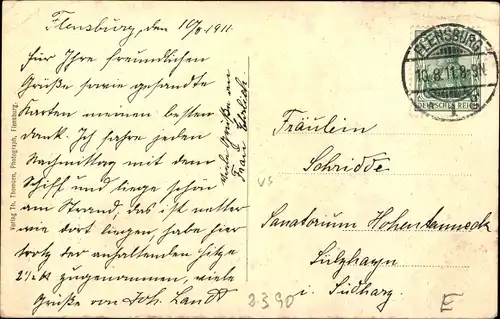 Flensburg, den 10/8 1911.
Für Ihre freundlichen
Grüße sowie gesandte
Karten meinen besten
dank. Ich fahre jeden
Nachmittag mit dem
Schiff und liege schön
am Strand, das ist netter
wie dort liegen habe hier
trotz der anhaltenden Hitze
2½ zugenommen, viele
Grüße von Joh. Landt
Viele Grüße an
Frau
Verlag Th. Thomsen, Photograph, Flensburg.
FLENSBURG
10.8.11.8-9N
DEUTSCHES REICH
Fräulein
Schridde
VS
Sanatorium Hohentanneck
Sülzhayn
i. Südharz.
3390
E